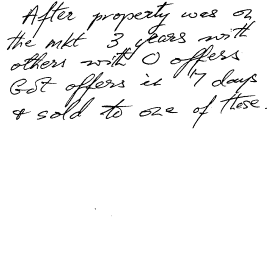 After property was on
the mkt 3 years with
others with 0 offers
Got offers in 7 days
& sold to one of these.